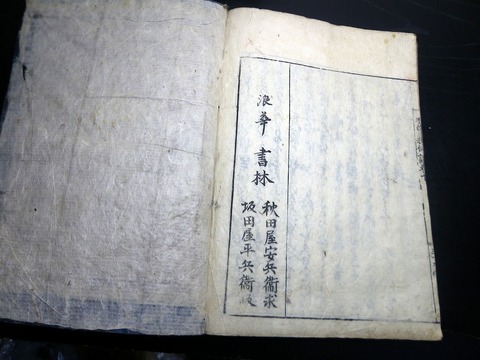 浪華 書林 秋田屋安兵衞求
坂田屋平兵衞